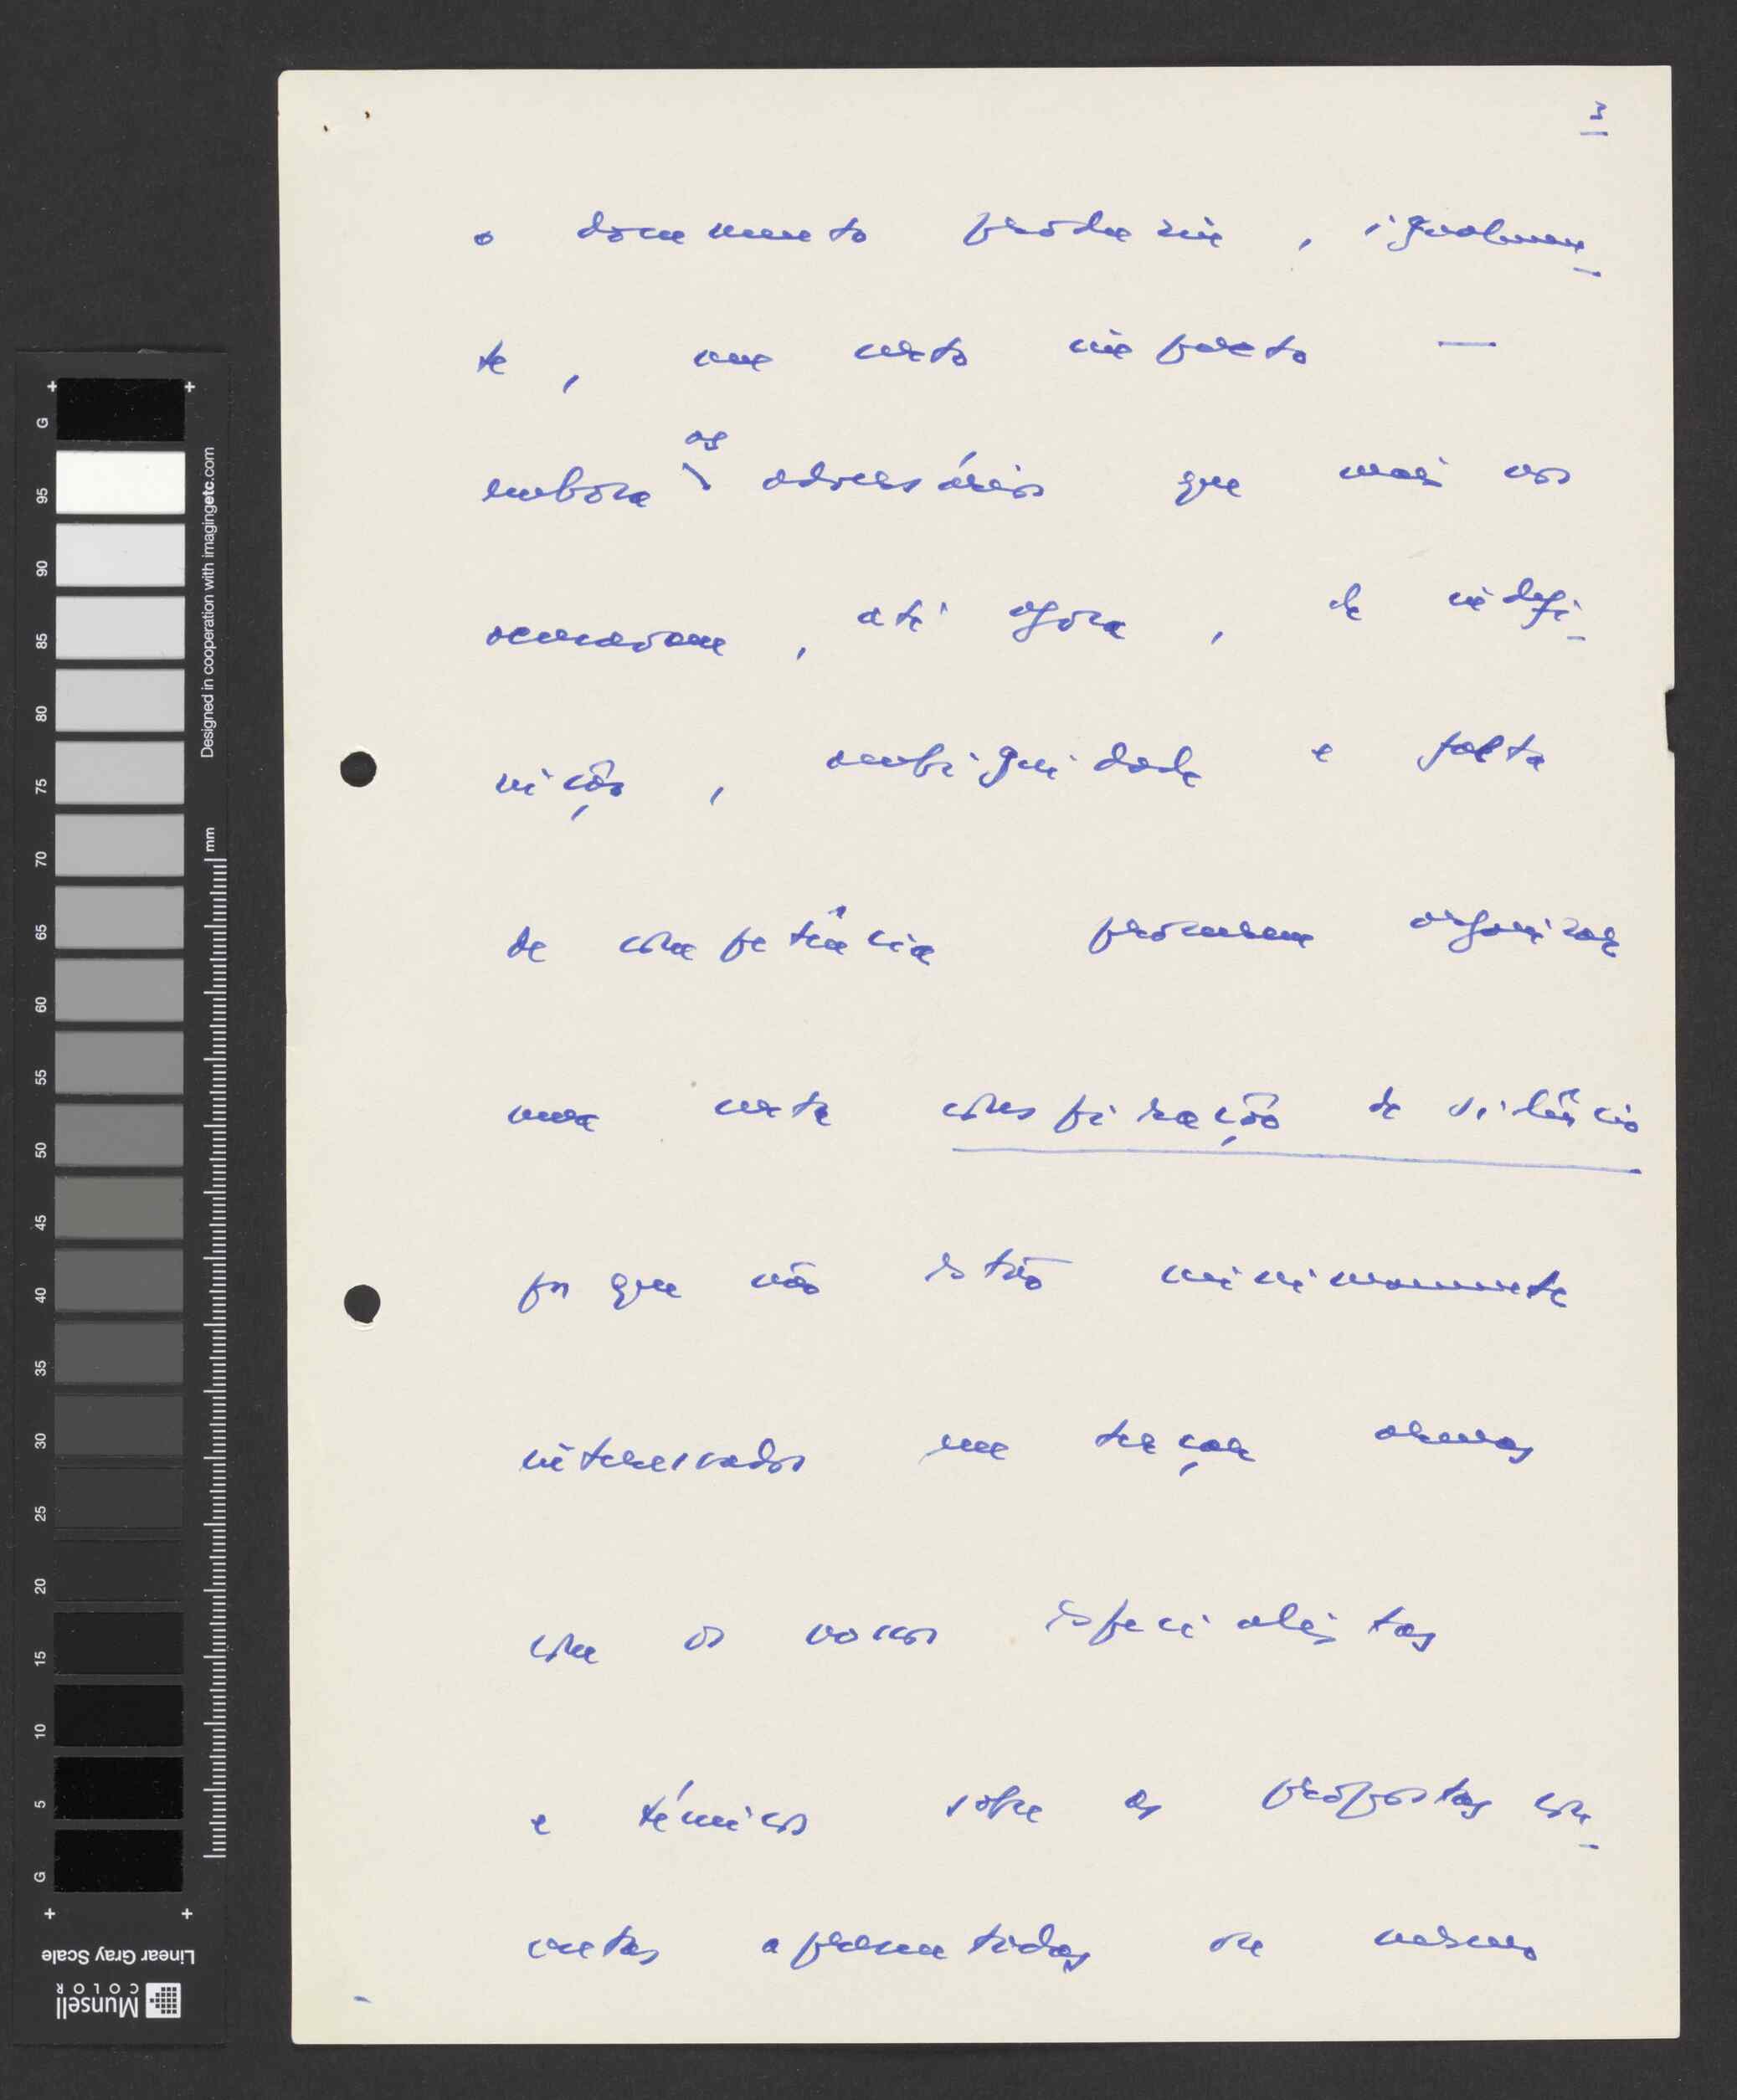 3
o documento produziu, igualmen-
te, um certo impacto —
os
embora adversários que mais nos
acusavam, até agora, de indefi-
nição, ambiguidade e falta
de competência procurem organizar
uma certa conspiração de silêncio
porque não estão minimamente
interessados em terçar armas
com os nossos especialistas
e técnicos sobre as propostas con-
cretas apresentadas ou mesmo
G
95
90
85
80
75
70
65
60
55
50
45
40
35
30
25
20
15
10
5
G
mm
Designed in cooperation with imagingetc.com
Linear Gray Scale
Munsell
COLOR